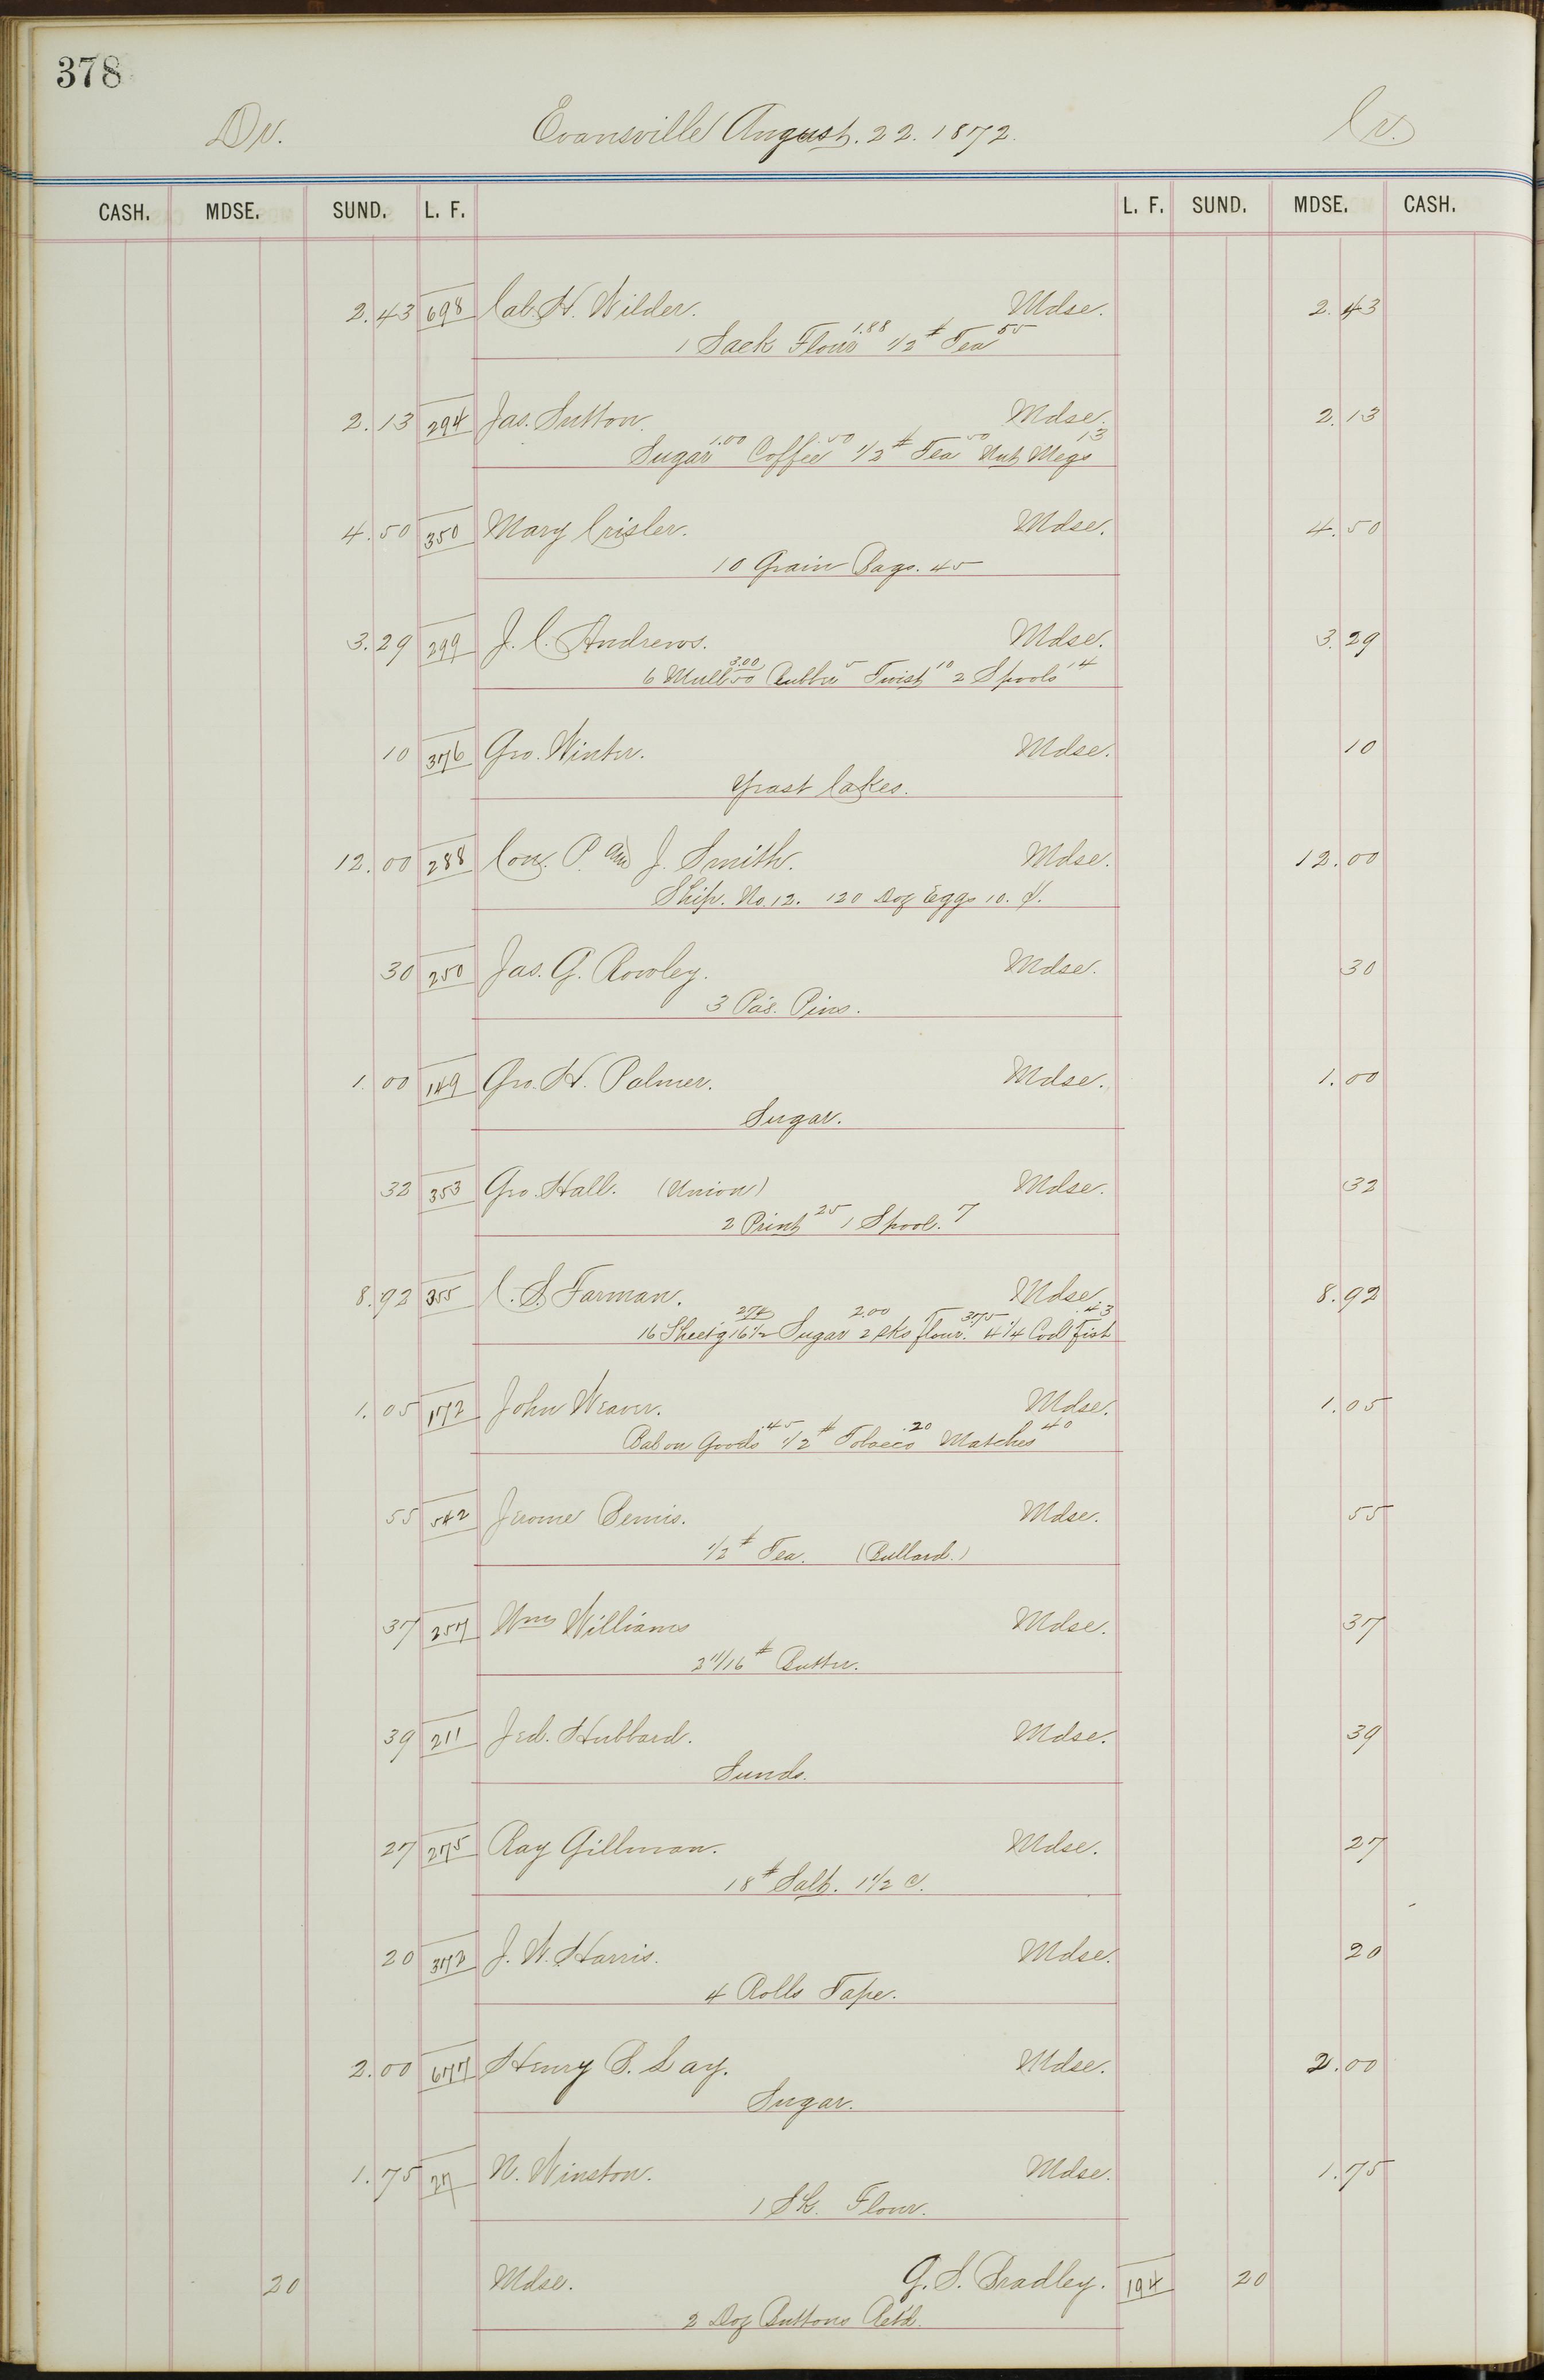 378
Dr. Evansville August. 22. 1872. Cr.
CASH. MDSE. SUND. L. F. L. F. SUND. MDSE. CASH.
2.43 698 Cal. H. Wilder. Mdse. 2.43
1 Sack Flour 1.88 1/2 # Tea 55
2.13 294 Jas. Sutton. Mdse. 2.13
Sugar 1.00 Coffee 50 1/2 # Tea 50 Nut Megs 13
4.50 350 Mary Crisler. Mdse. 4.50
10 Grain Bags. 45
3.29 299 J. C. Andrews. Mdse. 3.29
6 Mull 50 3.00 Rubber 5 Twist 10 2 Spools 14
10 376 Geo. Winter. Mdse. 10
Yeast Cakes.
12.00 288 Con. P. and J. Smith. Mdse. 12.00
Ship. No. 12. 120 Doz Eggs 10. ¢.
30 250 Jas. G. Rowley. Mdse. 30
3 Pa's. Pins.
1.00 149 Geo. H. Palmer. Mdse. 1.00
Sugar.
32 353 Geo. Hall. (Union) Mdse. 32
2 Print 25 1 Spool. 7
8.92 355 C. S. Farman. Mdse. 8.92
16 Sheet'g 16 1/2 274 Sugar 2.00 2 sks flour. 375 4 1/4 Cod Fish .43
1.05 172 John Weaver. Mdse. 1.05
Bal on Goods .45 1/2 # Tobacco .20 Matches 40
55 542 Jerome Bemis. Mdse. 55
1/2 # Tea. (Bullard.)
37 257 Wm Williams Mdse. 37
2 11/16 # Butter.
39 211 Jed. Hubbard. Mdse. 39
Sunds.
27 275 Ray Gillman. Mdse. 27
18 # Salt. 1 1/2 c.
20 372 J. W. Harris. Mdse. 20
4 Rolls Tape.
2.00 677 Henry B. Lay. Mdse. 2.00
Sugar.
1.75 27 N. Winston. Mdse. 1.75
1 Sk. Flour.
20 Mdse. G. S. Bradley. 194 20
2 Doz Buttons Ret'd.